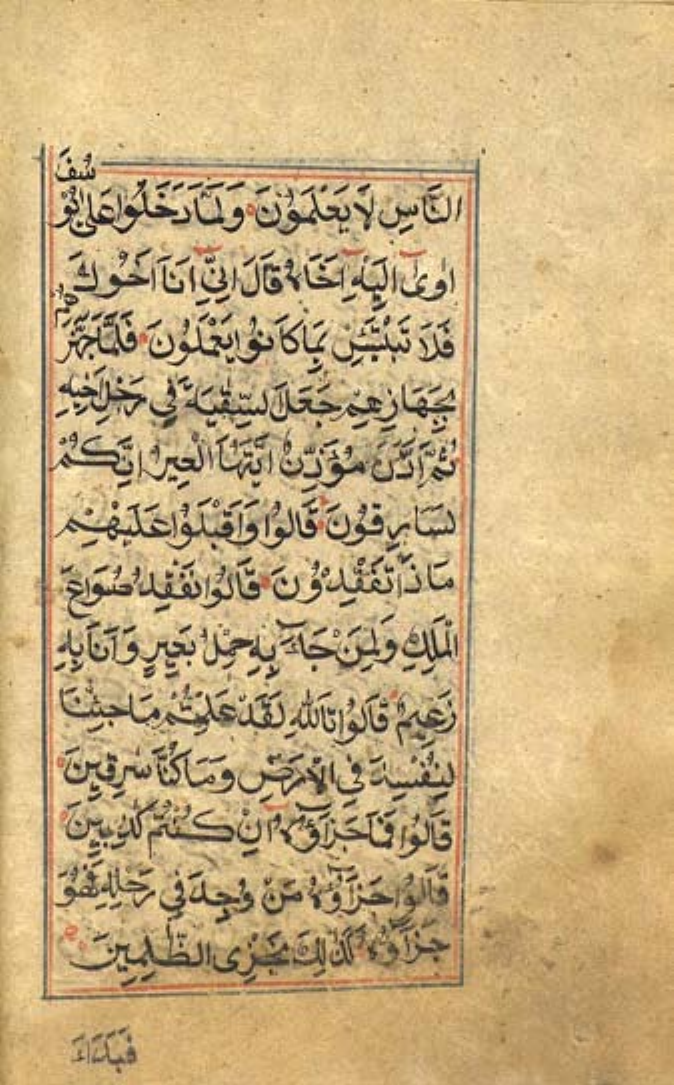 النَّاسِ لَا يَعْلَمُوْنَ وَلَمَّا دَخَلُوا عَلٰى يُوْسُفَ
اوٰى اِلَيْهِ اَخَاهُ قَالَ اِنِّىْ اَنَا اَخُوْكَ
فَلَا تَبْتَئِسْ بِمَا كَانُوا يَعْمَلُوْنَ فَلَمَّا جَهَّزَهُمْ
بِجَهَازِهِمْ جَعَلَ السِّقٰيَةَ فِى رَحْلِ اَخِيْهِ
ثُمَّ اَذَّنَ مُؤَذِّنٌ اَيَّتُهَا الْعِيْرُ اِنَّكُمْ
لَسَارِقُوْنَ قَالُوا وَاَقْبَلُوْا عَلَيْهِمْ
مَا ذَا تَفْقِدُوْنَ قَالُوا نَفْقِدُ صُوَاعَ
الْمَلِكِ وَلِمَنْ جَاءَ بِهِ حِمْلُ بَعِيْرٍ وَاَنَا بِهِ
زَعِيْمٌ قَالُوا تَاللّٰهِ لَقَدْ عَلِمْتُمْ مَا جِئْنَا
لِنُفْسِدَ فِى الْاَرْضِ وَمَا كُنَّا سٰرِقِيْنَ
قَالُوا فَمَا جَزَاؤُهُ اِنْ كُنْتُمْ كٰذِبِيْنَ
قَالُوا جَزَاؤُهُ مَنْ وُجِدَ فِى رَحْلِهِ فَهُوَ
جَزَاؤُهُ كَذٰلِكَ نَجْزِى الظّٰلِمِيْنَ
فَبَدَاَ